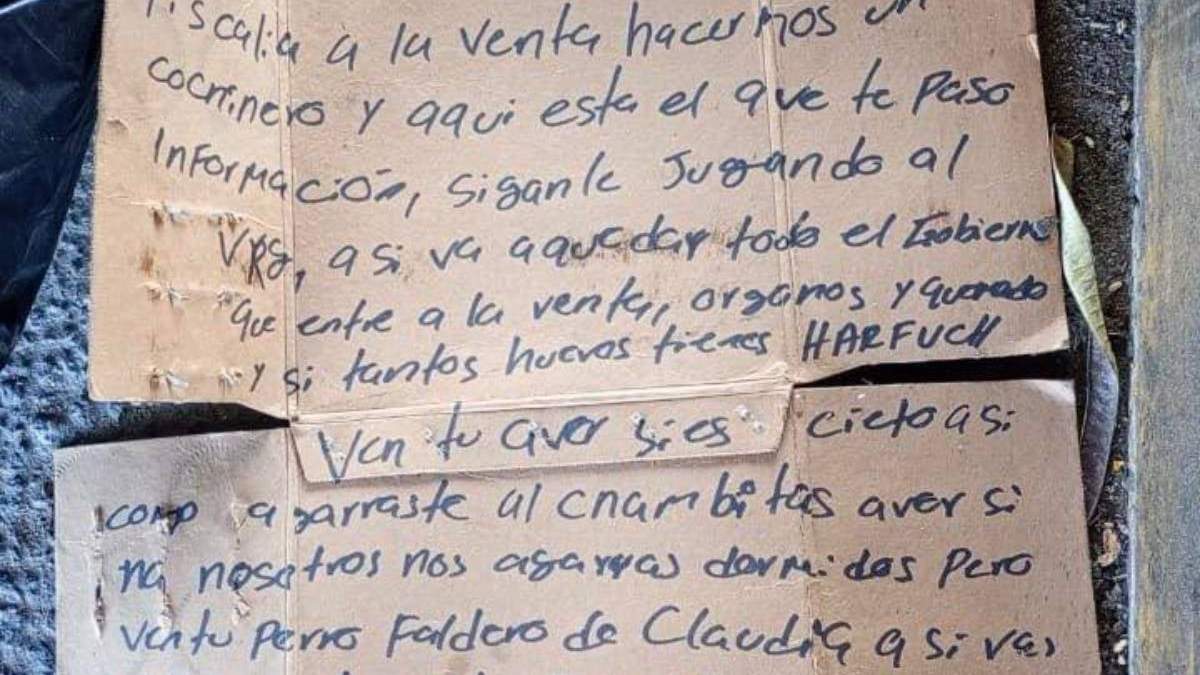 Fiscalia a la venta hacermos un
cocrinero y aqui esta el que te paso
Información, siganle Jugando al
VRg, asi va a quedar todo el Gobierno
que entre a la venta, organos y quemado
y si tantos huevos tienes HARFUCH
Ven tu aver si es cieto asi
como agarraste al chambitas aver si
na nosotros nos agarras dormidos Pero
ven tu Perro Faldero de Claudia asi vas